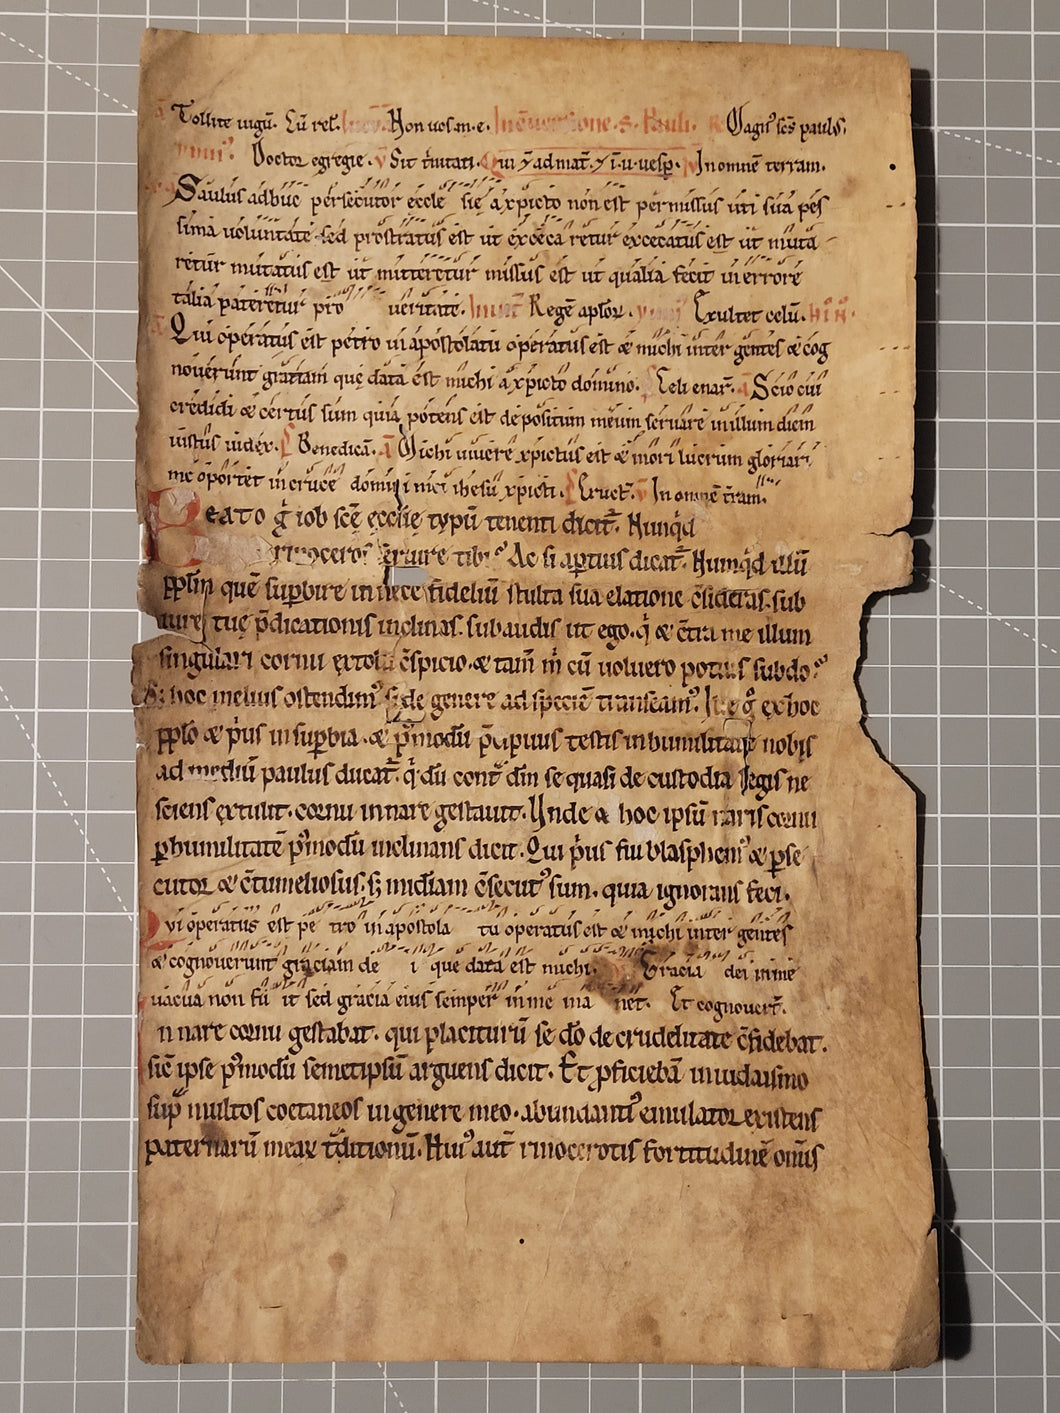 Tollite iugū. Cū rel. Non uos.m.e. In c̄uersione.s. Pauli. R Magn' scs paulꝰ.
ymn'. Doctor egregie. v Sit t̄initati. In omnē terram.
Saulus adhuc persecutor eccle sie a xpicto non est permissus uti sua pes
sima uoluntate sed prostratus est ut exceca retur excecatus est ut muta
retur mutatus est ut mitteretur missus est ut qualia fecit in errore
talia pateretur pro ueritate. Inuit Regē aplor. ymn Exultet celū. IN .I. N.
Qui operatus est petro in apostolatu operatus est & michi inter gentes & cog
nouerunt gratiam que data est michi a xpicto domino. Celi enar. A Scio cui
credidi & certus sum quia potens est depositum meum seruare in illum diem
iustus iudex. Benedicā. A Michi uiuere xpictus est & mori lucrum gloriari
me oportet in cruce domini nici ihesu xpicti. Eruct. v In omnē t̄ram.
Beato g iob scē ecclie typū tenenti dicit. Nunqd
rinoceros seruire tibi Ac si aptius dicat. Nunqd illū
pplm quē supbire in nece fideliū stulta sua elatione c̄sideras.sub
iure tue p̄dicationis inclinas. subaudis ut ego. q & c̄tra me illum
singulari cornu extolli c̄spicio. & tam m cū uoluero potius subdo.
S; hoc melius ostendimꝰ si de genere ad speciē transeamꝰ. Ille g ex hoc
pplo & pus in supbia. & pꝰmodū p̄cipuus testis in humilitate nobis
ad mediū paulus ducat. q dū cont dm se quasi de custodia legis ne
sciens extulit. cornu in nare gestauit. Unde & hoc ipsū naris cornu
phumilitatē pꝰmodū inclinans dicit. Qui pus fui blasphemꝰ & pse
cutor & c̄tumeliosus. s; midiam c̄secutꝰ sum. quia ignorans feci.
Qui operatus est pe tro in apostola tu operatus est & michi inter gentes
& cognouerunt graciam de i que data est michi. Gracia dei in me
uacua non fu it sed gracia eius semper in me ma net. Et cognouert.
In nare cornu gestabat. qui placiturū se do de crudelitate c̄fidebat.
sic ipse pꝰmodū semetipsū arguens dicit. Et pficiebā in iudaismo
sup multos coetaneos in genere meo. abundantꝰ emulator existens
paternarū mear t̄ditionū. Huiꝰ aut rinocerotis fortitudinē omis